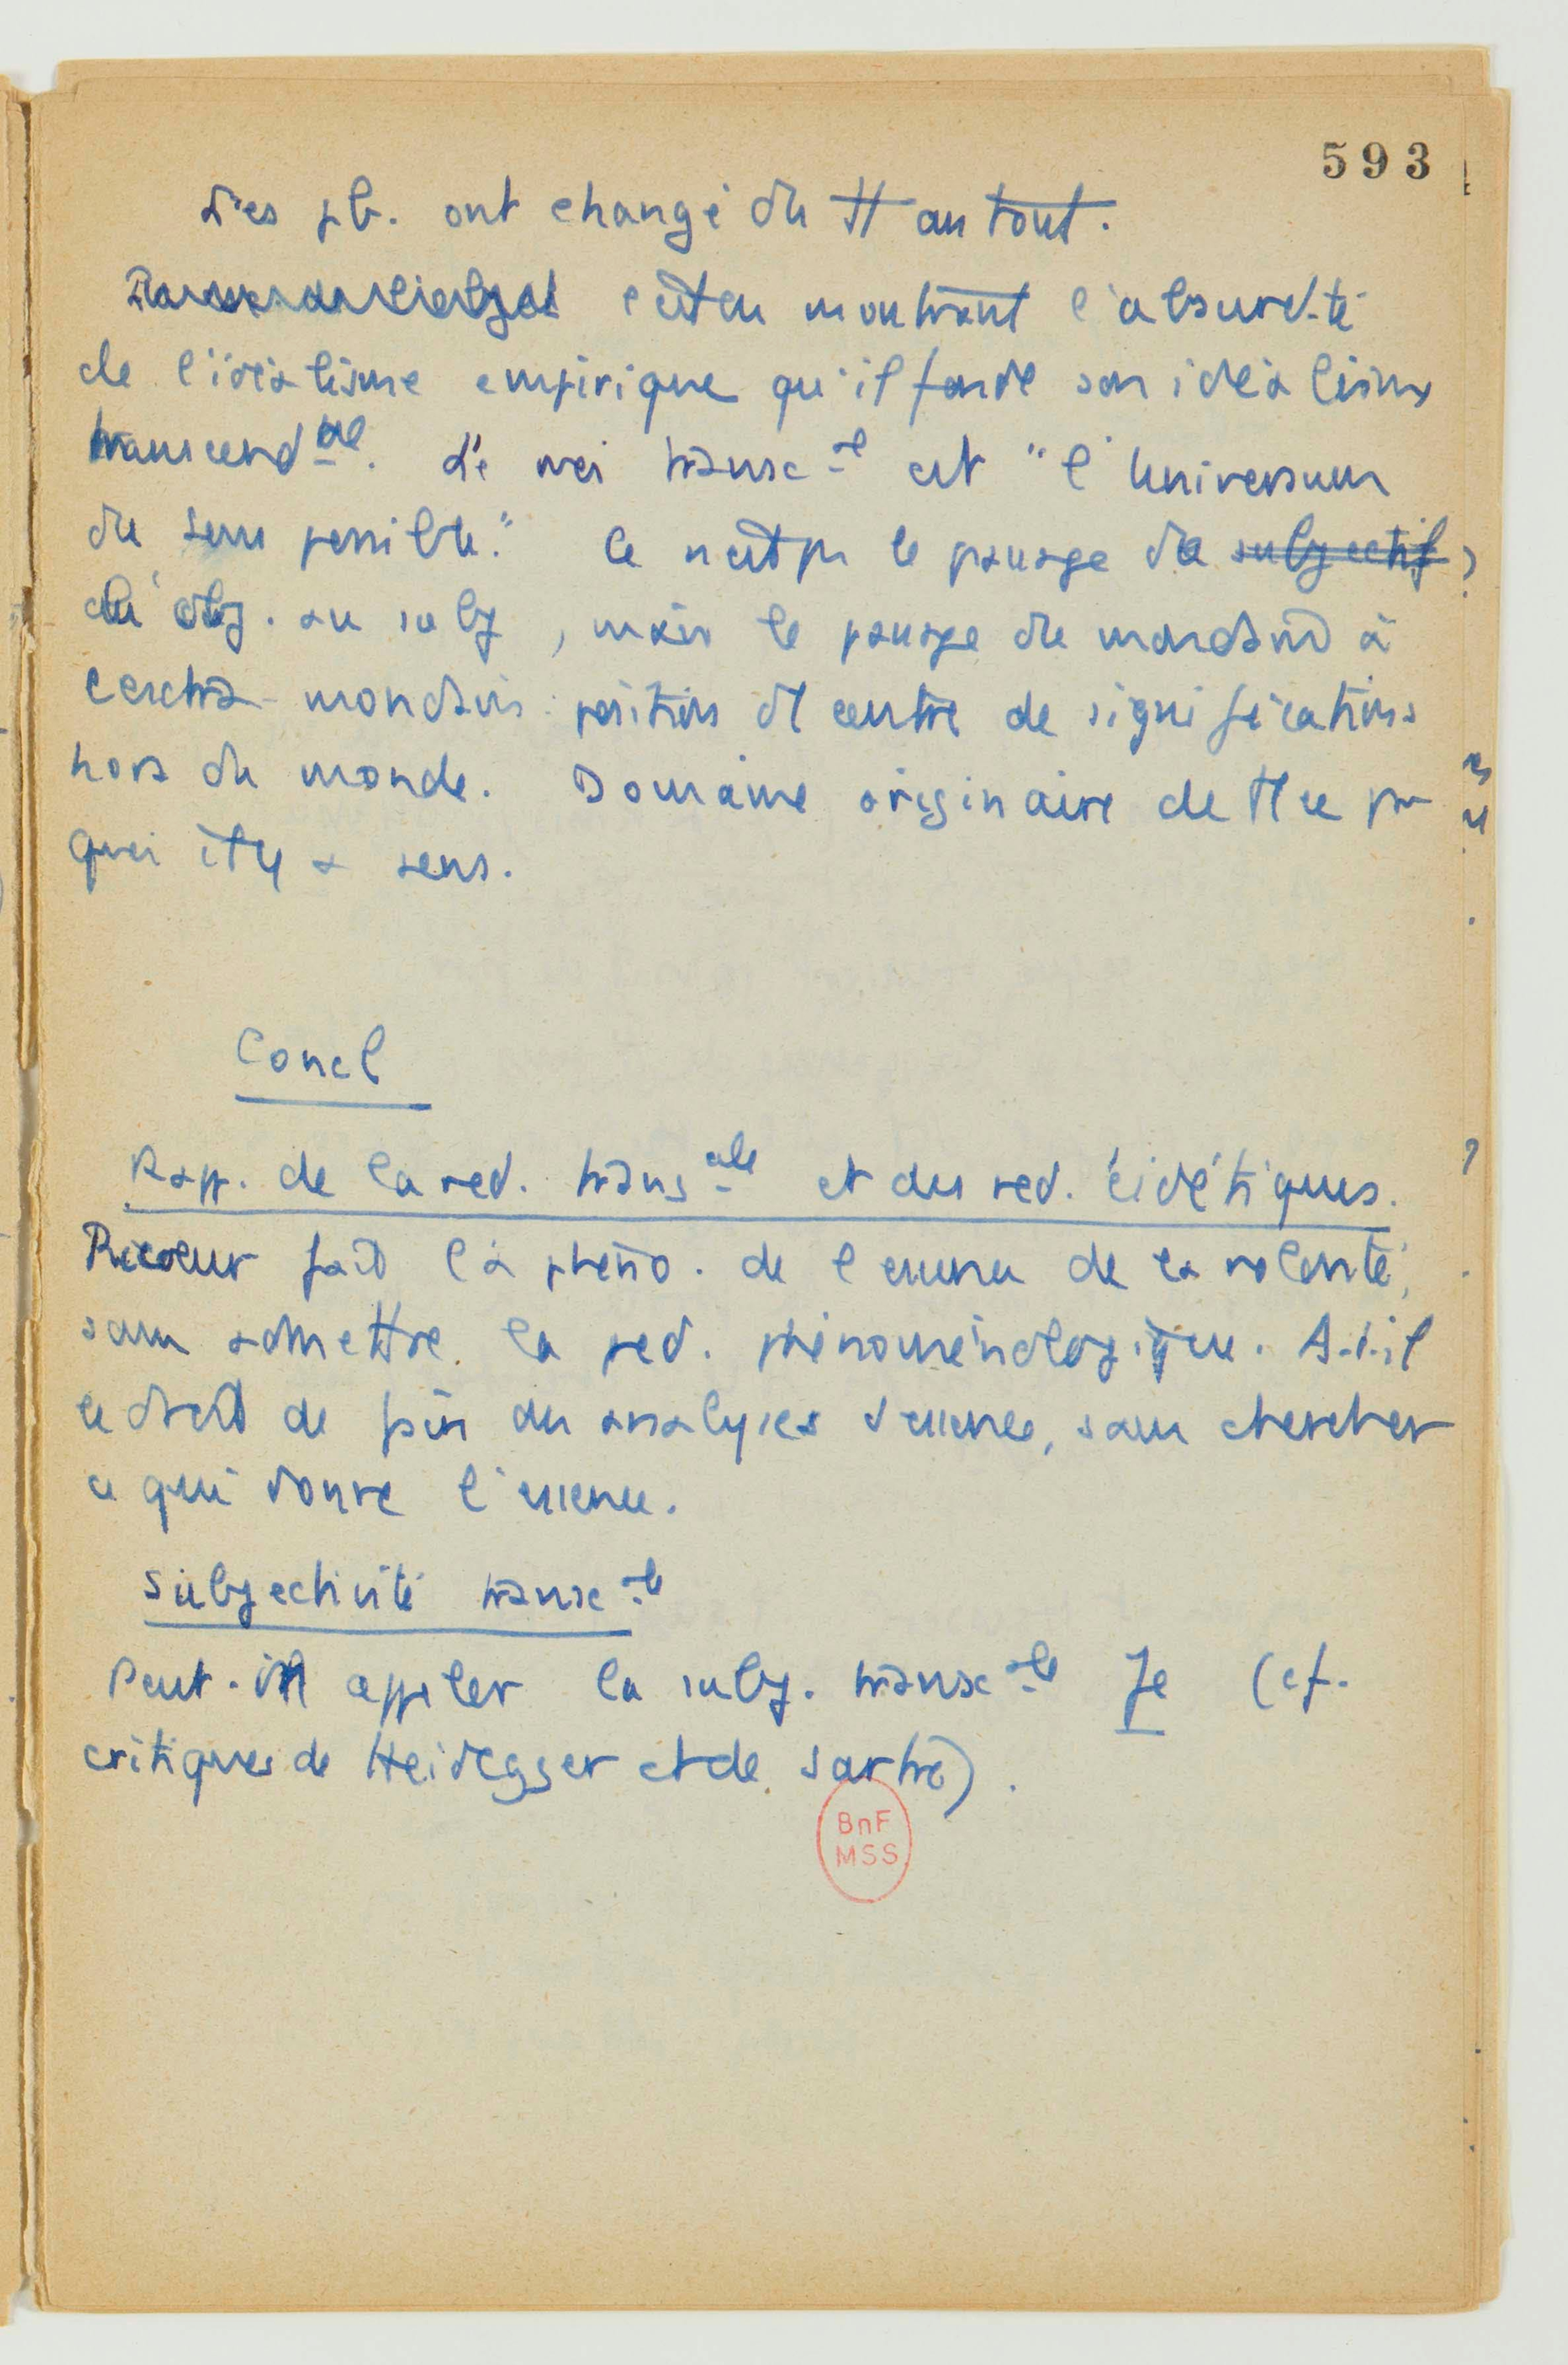 593
Les pb. ont changé du tt au tout.
c'est en montrant l'absurdité
de l'idéalisme empirique qu'il fonde son idéalisme
transcend al. Le moi transc al est "l'Universum
du sens possible." Ce n'est pas le passage de subjectif
du obj. au subj, mais le passage du mondain à
l'extra-mondain : position d'1 centre de significations
hors du monde. Domaine originaire de tt ce par
quoi il y a sens.
Concl
Rapp. de la red. trans ale et des red. eidétiques.
Ricoeur fait la phéno. de l'essence de la volonté,
sans admettre la red. phénoménologique. A-t-il
le droit de faire des analyses d'essences, sans chercher
ce qui donne l'essence.
Subjectivité transc ale
Peut-on appeler la subj. transc ale Je (cf.
critiques de Heidegger et de Sartre).
BnF
MSS